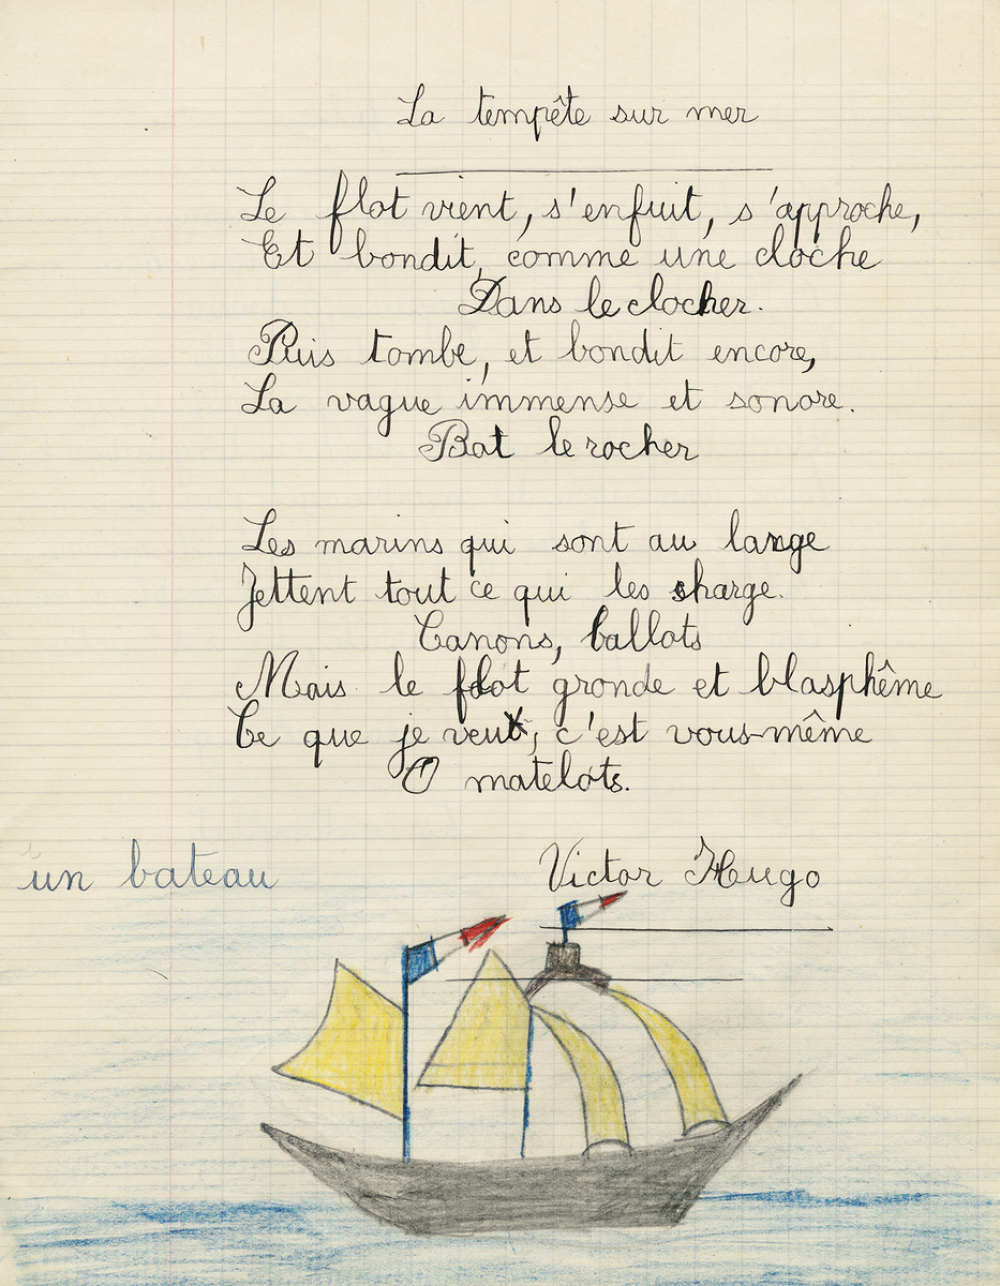 La tempête sur mer
Le flot vient, s'enfuit, s'approche,
Et bondit, comme une cloche
Dans le clocher.
Puis tombe, et bondit encore,
La vague immense et sonore.
Bat le rocher
Les marins qui sont au large
Jettent tout ce qui les charge.
Canons, ballots
Mais le flot gronde et blasphême
Ce que je veux, c'est vous-même
O matelots.
un bateau
Victor Hugo